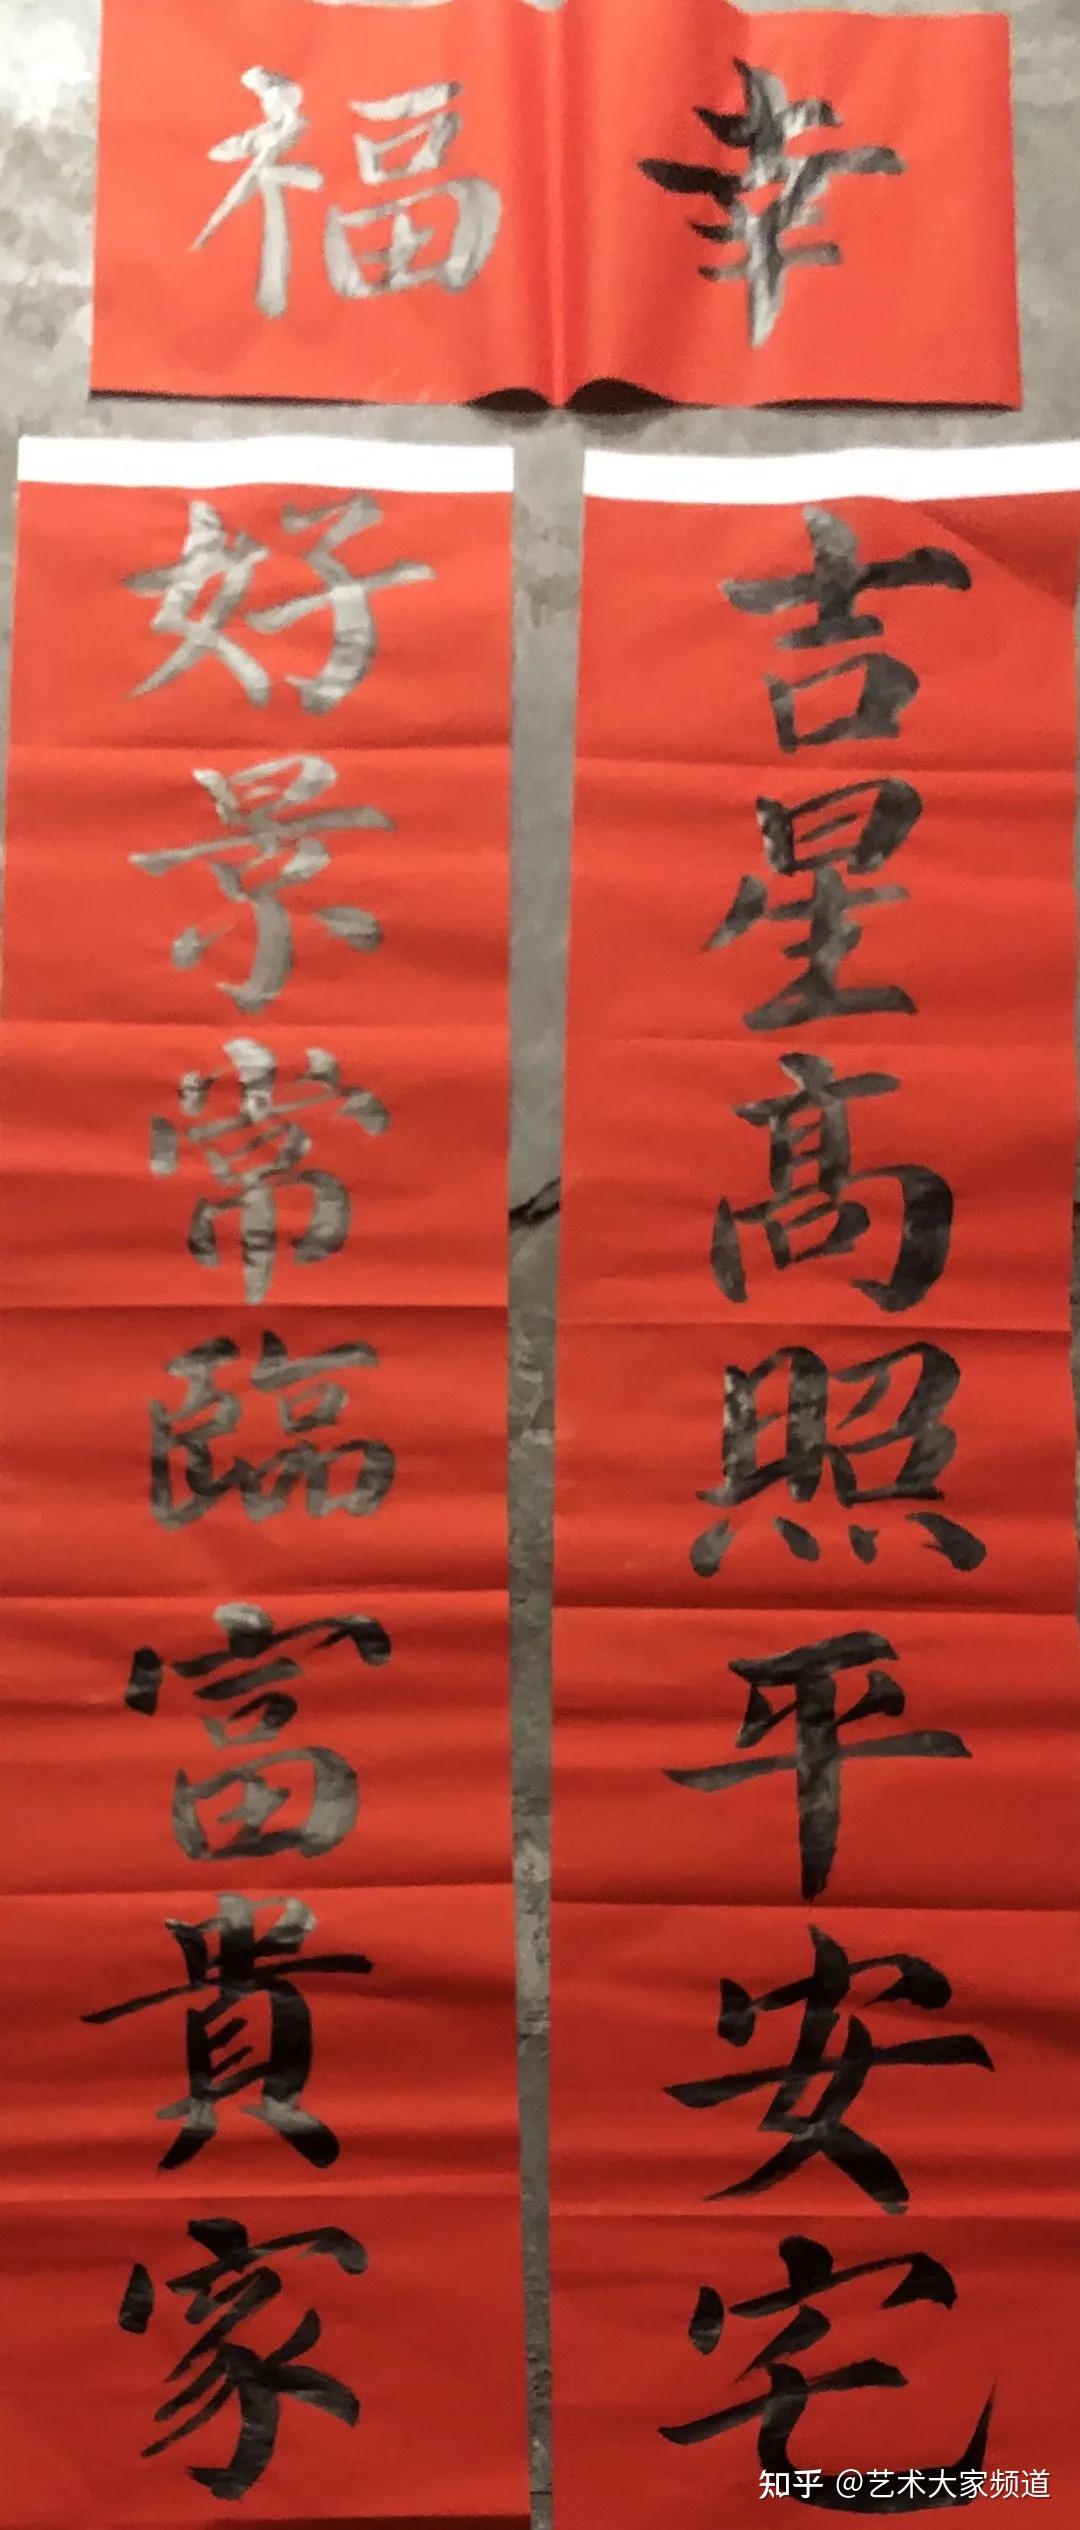 幸福
吉星高照平安宅
好景常臨富貴家
知乎 @艺术大家频道